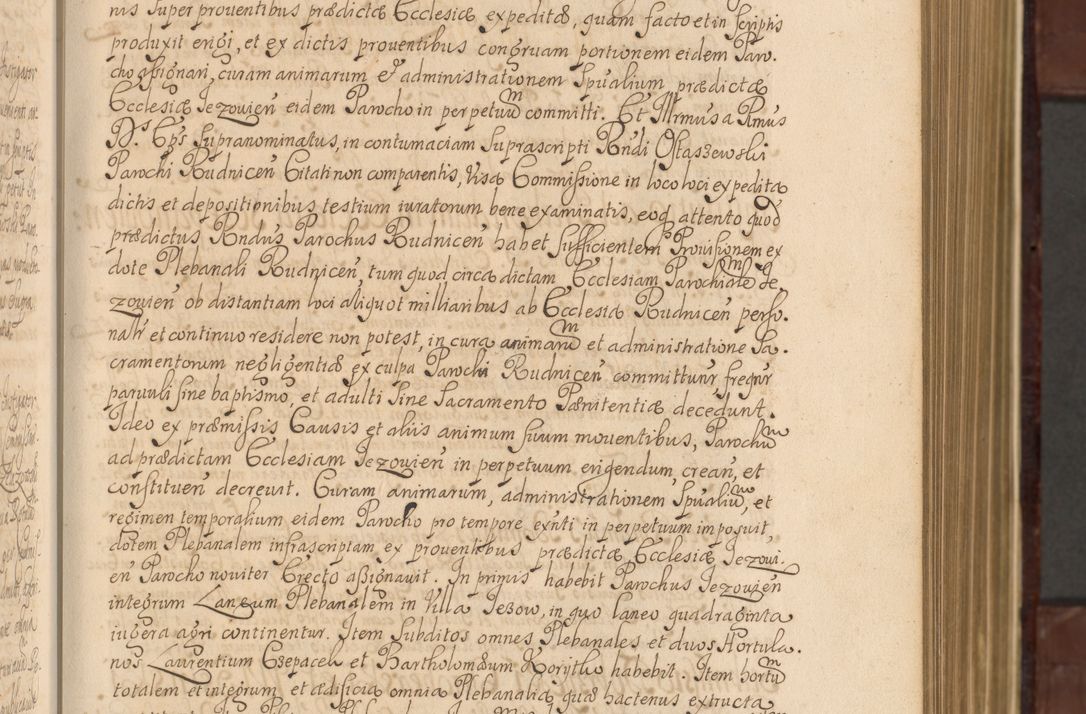 nis super proventibus prædictæ Ecclesiæ expeditæ, quam facto et in scriptis
produxit erigi, et ex dictis proventibus congruam portionem eidem Paro.
cho assignari, curam animarum & administrationem Spualium prædictæ
Ecclesiæ Jezovien eidem Parocho in perpetuum committi. Et Illrmus a Rmus
Ds. Eps supranominatus, in contumaciam suprascripti Rndi Ostaszewski
Parochi Rudnicen Citati non comparentis, visa Commissione in loco loci expedita
dictis et depositionibus testium iuratorum bene examinatis, eoq attento quod
prædictus Rndus Parochus Rudnicen habet sufficientem Provisionem ex
dote Plebanali Rudnicen, tum quod circa dictam Ecclesiam Parochialem Je,
zovien ob distantiam loci aliquot milliaribus ab Ecclesia Rudnicen perso.
nalr et continuo residere non potest, in cura animarum et administratione Sa.
cramentorum negligentiæ ex culpa Parochi Rudnicen committunr freqnr
parvuli sine baptismo, et adulti sine Sacramento Pænitentiæ decedunt.
Ideo ex præmissis Causis et aliis animum suum moventibus, Parochum
ad prædictam Ecclesiam Jezovien in perpetuum erigendum, crean, et
constituen decrevit. Curam animarum, administrationem Spualium, et
regimen temporalium eidem Parocho pro tempore exnti in perpetuum imposuit,
dotem Plebanalem infrascriptam ex proventibus prædictæ Ecclesiæ Jezovi.
en Parocho noviter Erecto assignavit. In primis habebit Parochus Jezovien
integrum Laneum Plebanalem in Villa Jezow, in quo laneo quadraginta
iugera agri continentur. Item Subditos omnes Plebanales et duos Hortula.
nos Laurentium Czepacek et Bartholomæum Korytko habebit. Item hortum
totalem et integrum, et ædificia omnia Plebanalia, quæ hactenus extructa